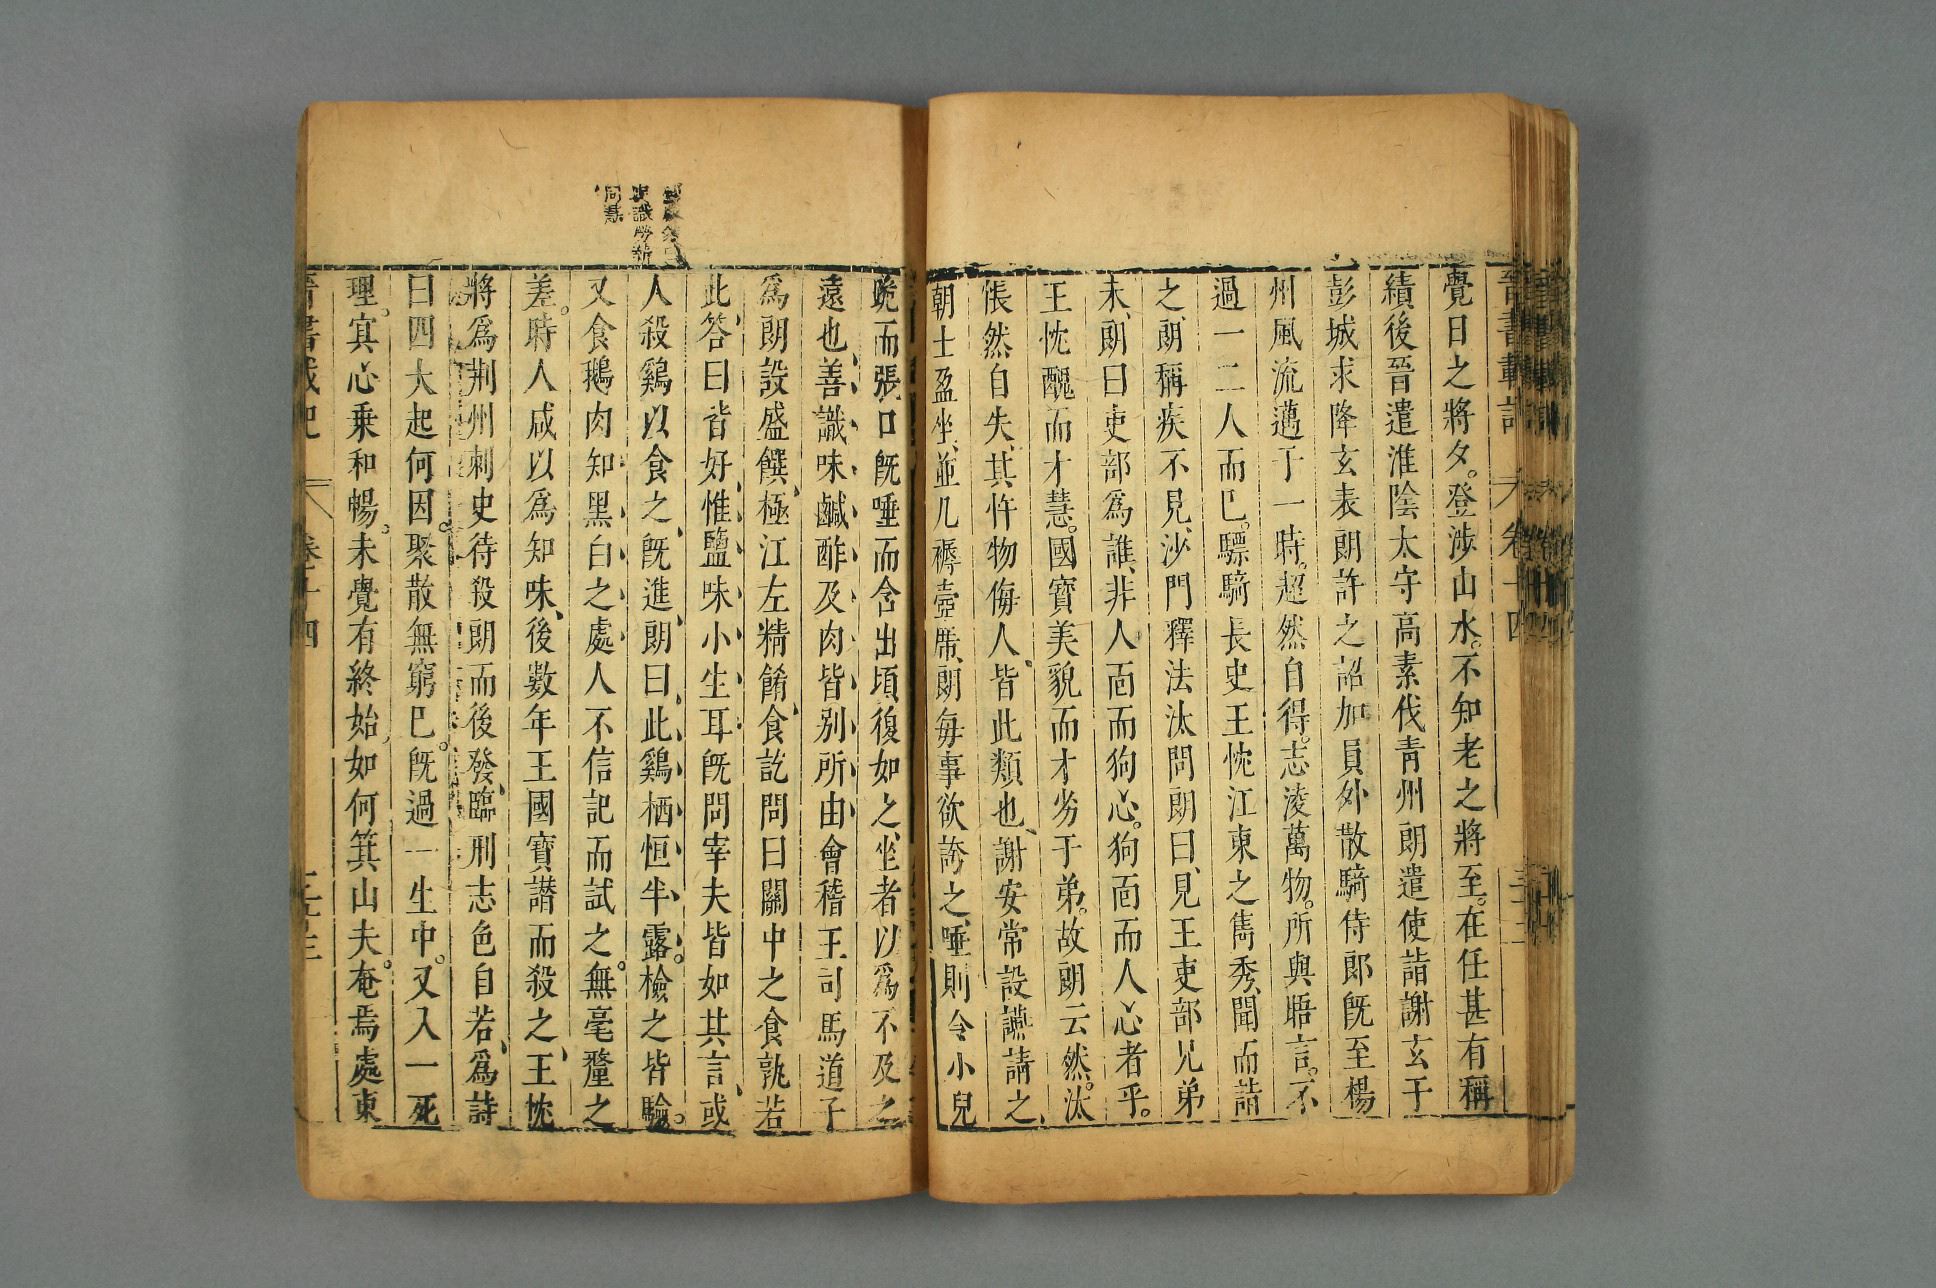 晉書載記 卷十四
覺日之將夕。登涉山水。不知老之將至。在任甚有稱
績後晉遣淮陰太守高素伐青州朗遣使詣謝玄于
彭城求降玄表朗許之詔加員外散騎侍郎既至楊
州風流邁于一時。超然自得。志淩萬物。所與晤言。不
過一二人而已。驃騎長史王忱江東之雋秀、聞而詣
之、朗稱疾不見、沙門釋法汰問朗曰、見王吏部兄弟
未、朗曰吏部爲誰、非人面而狗心。狗面而人心者乎。
王忱醜而才慧。國寶美貌而才劣于弟。故朗云然。汰
悵然自失、其忤物侮人、皆此類也、謝安常設讌請之、
朝士盈坐、並几褥壺席、朗每事欲誇之、唾則令小兒
跪而張口既唾而含出頃復如之、坐者以爲不及之
遠也、善識味鹹酢及肉皆別所由會稽王司馬道子
爲朗設盛饌、極江左精餚、食訖問曰關中之食孰若
此、答曰皆好、惟鹽味小生耳既問宰夫皆如其言、或
人殺鷄以食之、既進、朗曰、此鷄栖恒半露。檢之皆驗。
又食鵝肉知黑白之處人不信記而試之。無毫釐之
差。時人咸以爲知味、後數年王國寶譖而殺之、王忱
將爲荆州刺史待殺朗而後發、臨刑志色自若、爲詩
曰四大起何因。聚散無窮已。既過一生中。又入一死
理。冥心乗和暢。未覺有終始、如何箕山夫。奄焉處東
晉書載記 卷十四